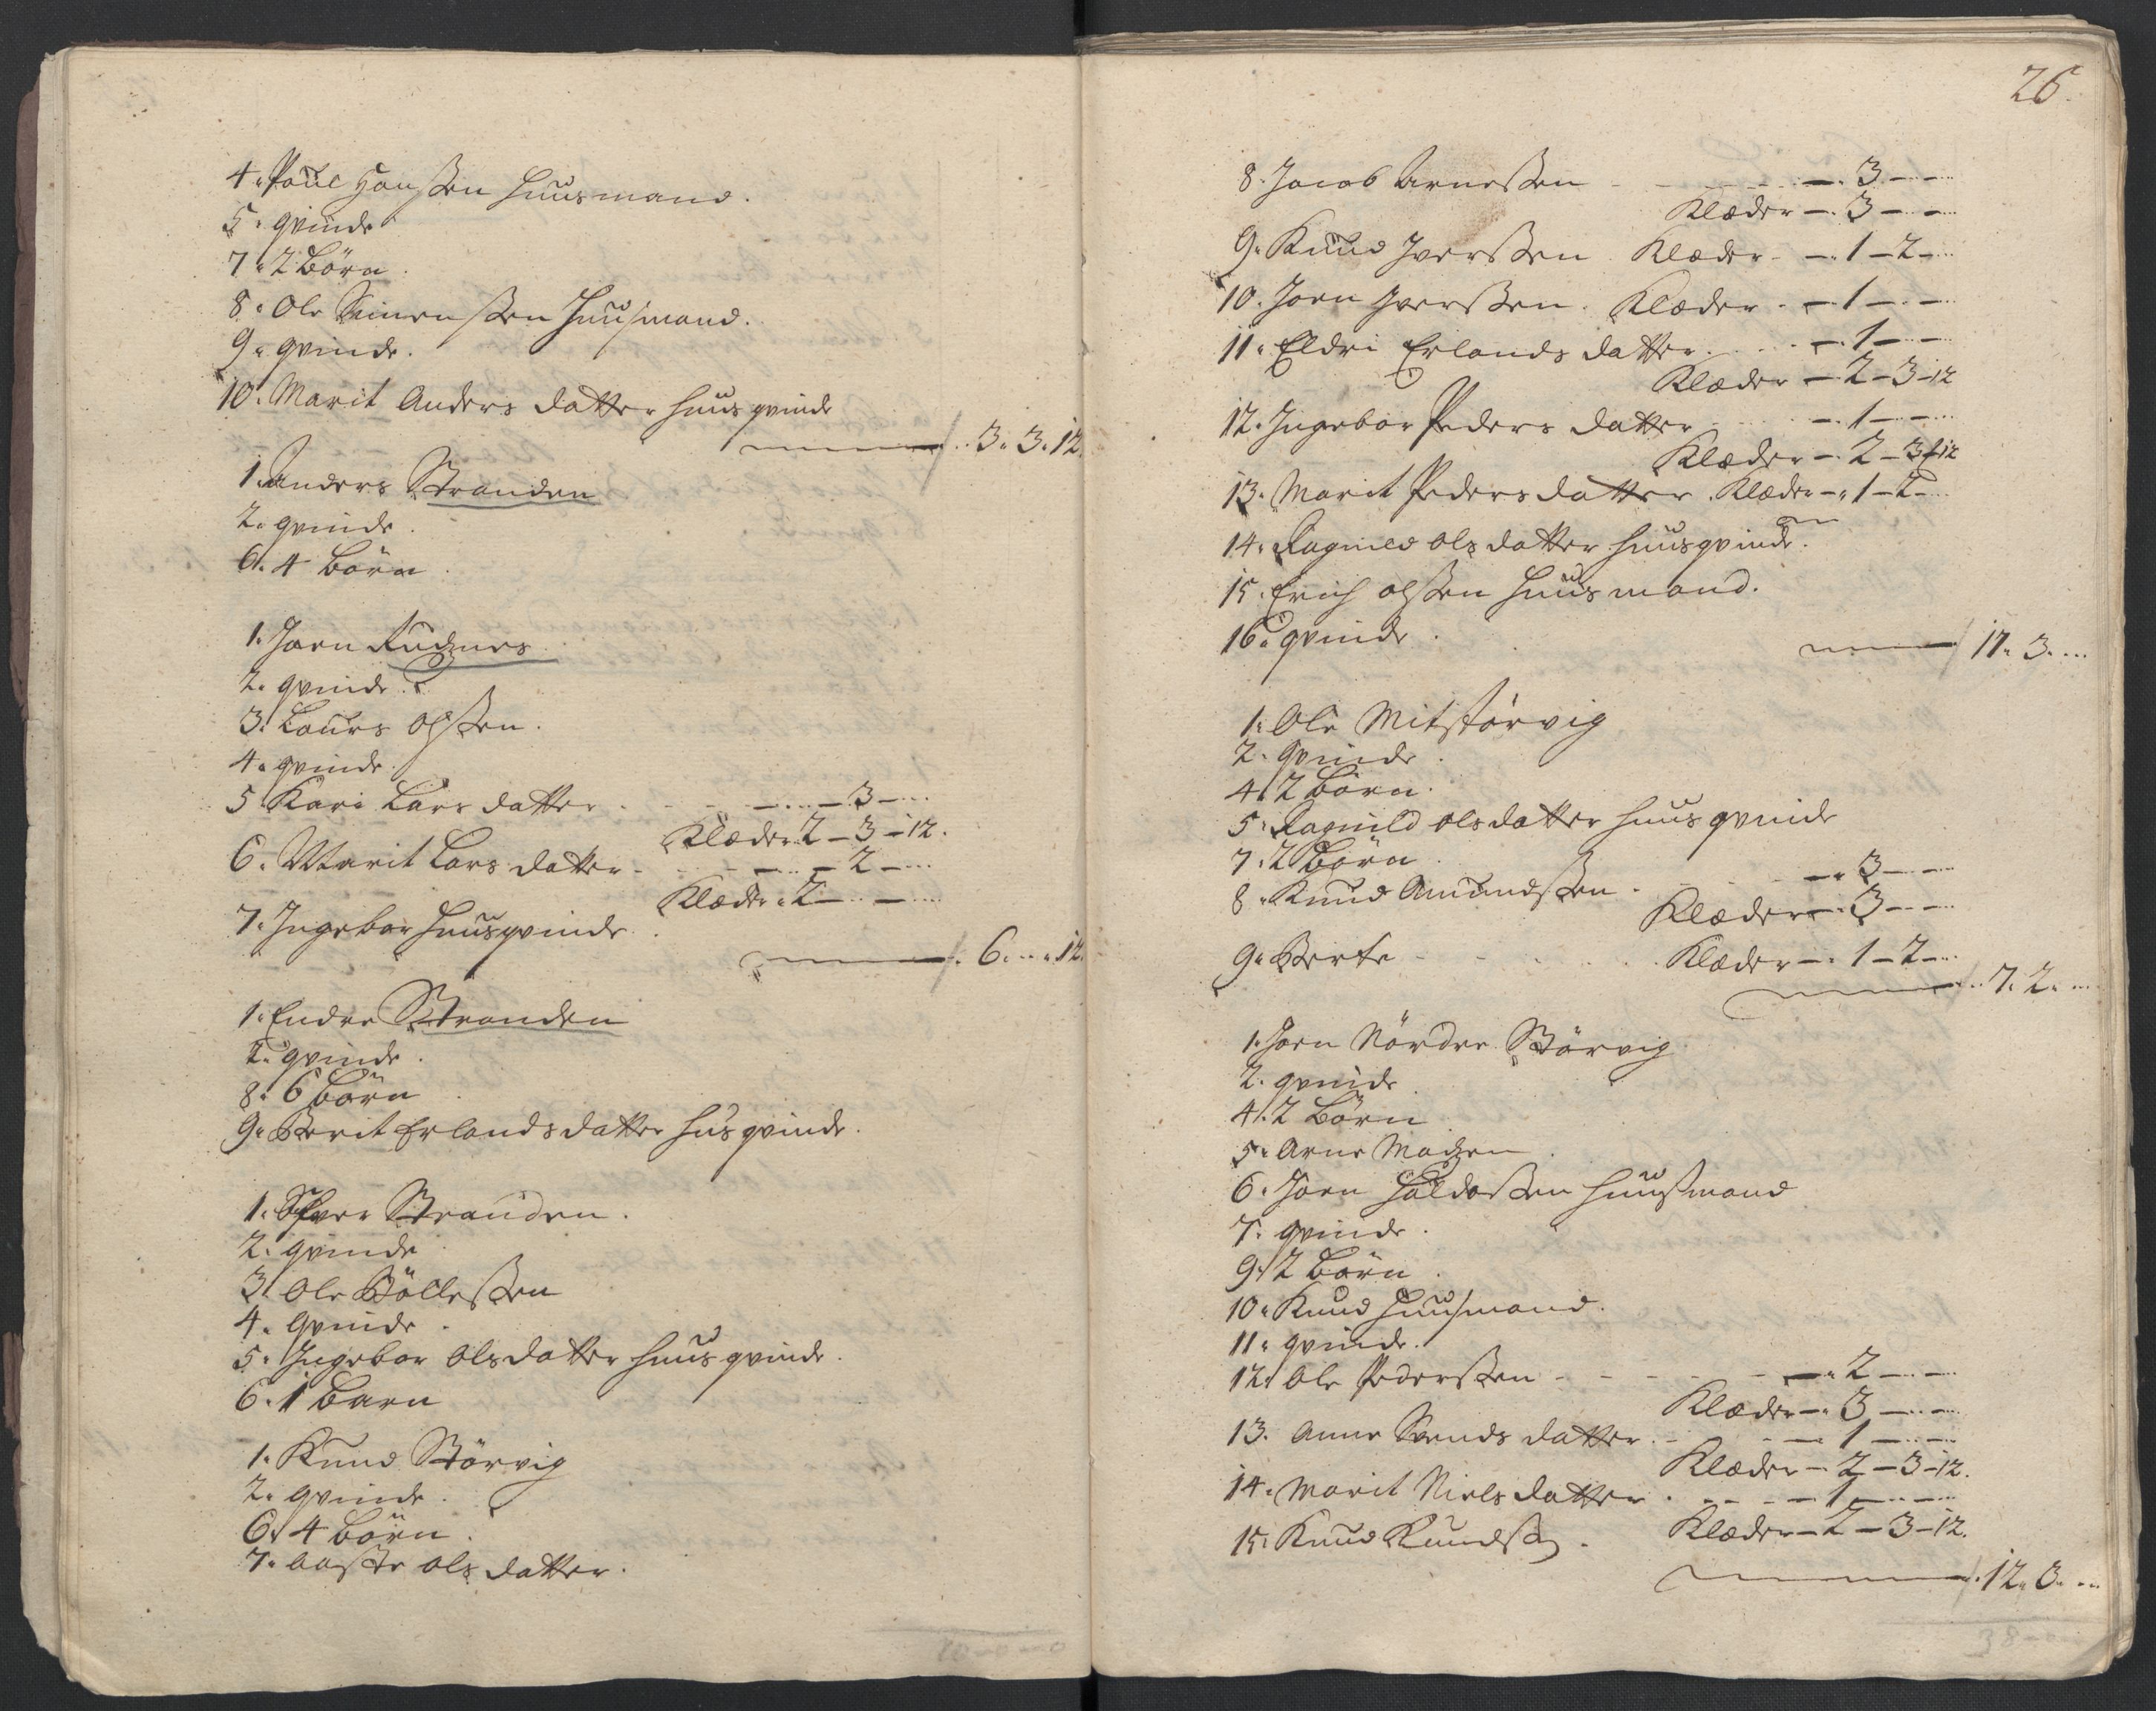 4. Poul Hanssen Huusmand.
5. qvinde
7. 2 Börn
8. Ole Simenssen Huusmand.
9. qvinde.
10. Marit Anders datter huusqvinde
3. 3. 12.
1. Anders Stranden
2. qvinde.
6. 4 Börn.
1. Joen Rudznes
2. qvinde.
3. Laurs Olssen.
4. qvinde.
5 Kari Lars datter - 3 -
Klæder 2 - 3 - 12.
6. Marit Lars datter - 2 -
Klæder. 2 -
7. Ingebor huusqvinde.
6. .. 12.
1. Endre Stranden
2. qvinde.
8. 6 Börn
9. Berit Erlands datter husqvinde.
1. Stranden.
2. qvinde
3. Ole
4. Qvinde.
5. Ingebor Olsdatter huusqvinde.
6. 1 Barn
1. Knud Störvig
2. qvinde.
6. 4 börn.
7. Aaste Ols datter.
26.
8. Jacob Arnessen - 3 -
Klæder - 3 -
9. Knud Iverssen Klæder - 1 - 2 -
10. Joen Iverssen. Klæder - 1 -
11. Eldri Erlands datter - 1 -
Klæder - 2 - 3 - 12
12. Ingebor Peders datter - 1 -
Klæder - 2 - 3 - 12
13. Marit Pedersdatter. Klæder - 1 - 2 -
14. Ragnild Ols datter huusqvinde.
15. Erich Olssen Huusmand.
16. qvinde.
17. 3. ...
1. Ole Mitstörvig
2. Qvinde.
4. 2 börn.
5. Ragnild olsdatter huusqvinde
7. 2 Börn.
8. Knud Amundssen - 3 -
Klæder - 3 -
9. Berte - Klæder - 1 - 2 -
7. 2. ...
1. Joen Nördre Störvig
2. qvinde
4. 2 Börn
5. Arne Madzen.
6. Joen Haldossen huusmand
7. qvinde.
9. 2 Börn.
10. Knud Huusmand.
11. qvinde.
12. Ole Pederssen - 2 -
Klæder - 3 -
13. Anne Svends datter - 1 -
Klæder - 2 - 3 - 12.
14. Marit Niels datter - 1 -
Klæder - 2 - 3 - 12.
15. Knud Knuds.
12. 3. ...